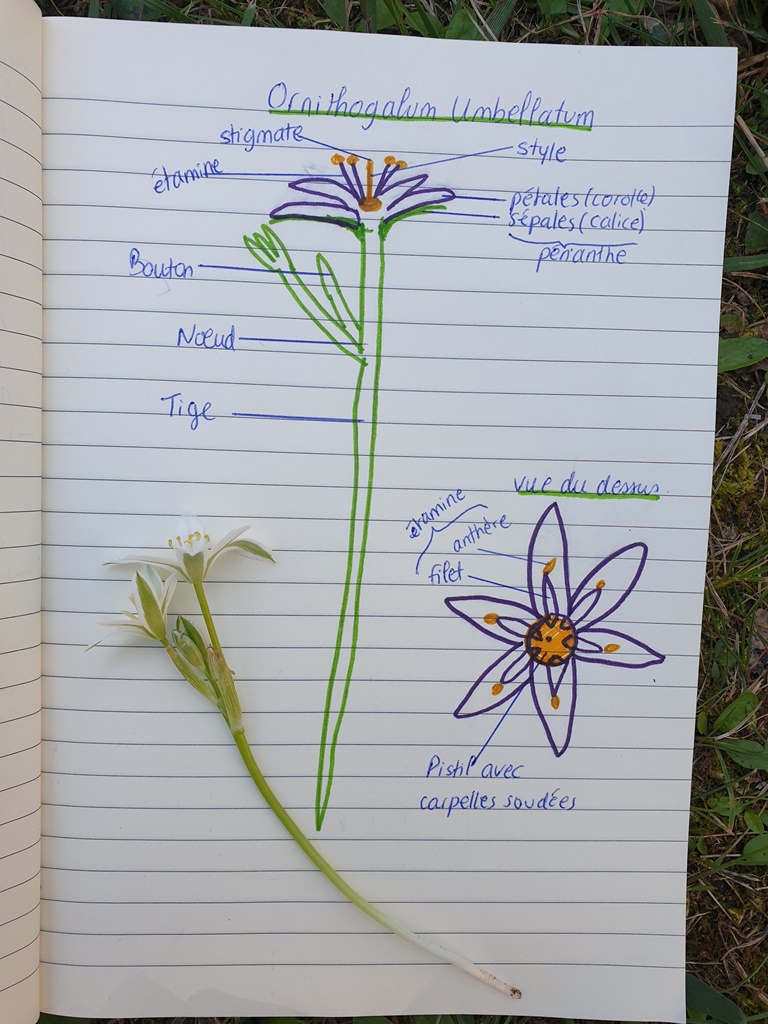 Ornithogalum Umbellatum
stigmate
style
étamine
pétales (corolle)
sépales (calice)
périanthe
Bouton
Nœud
Tige
vue du dessus
étamine
anthère
filet
Pistil avec
carpelles soudées